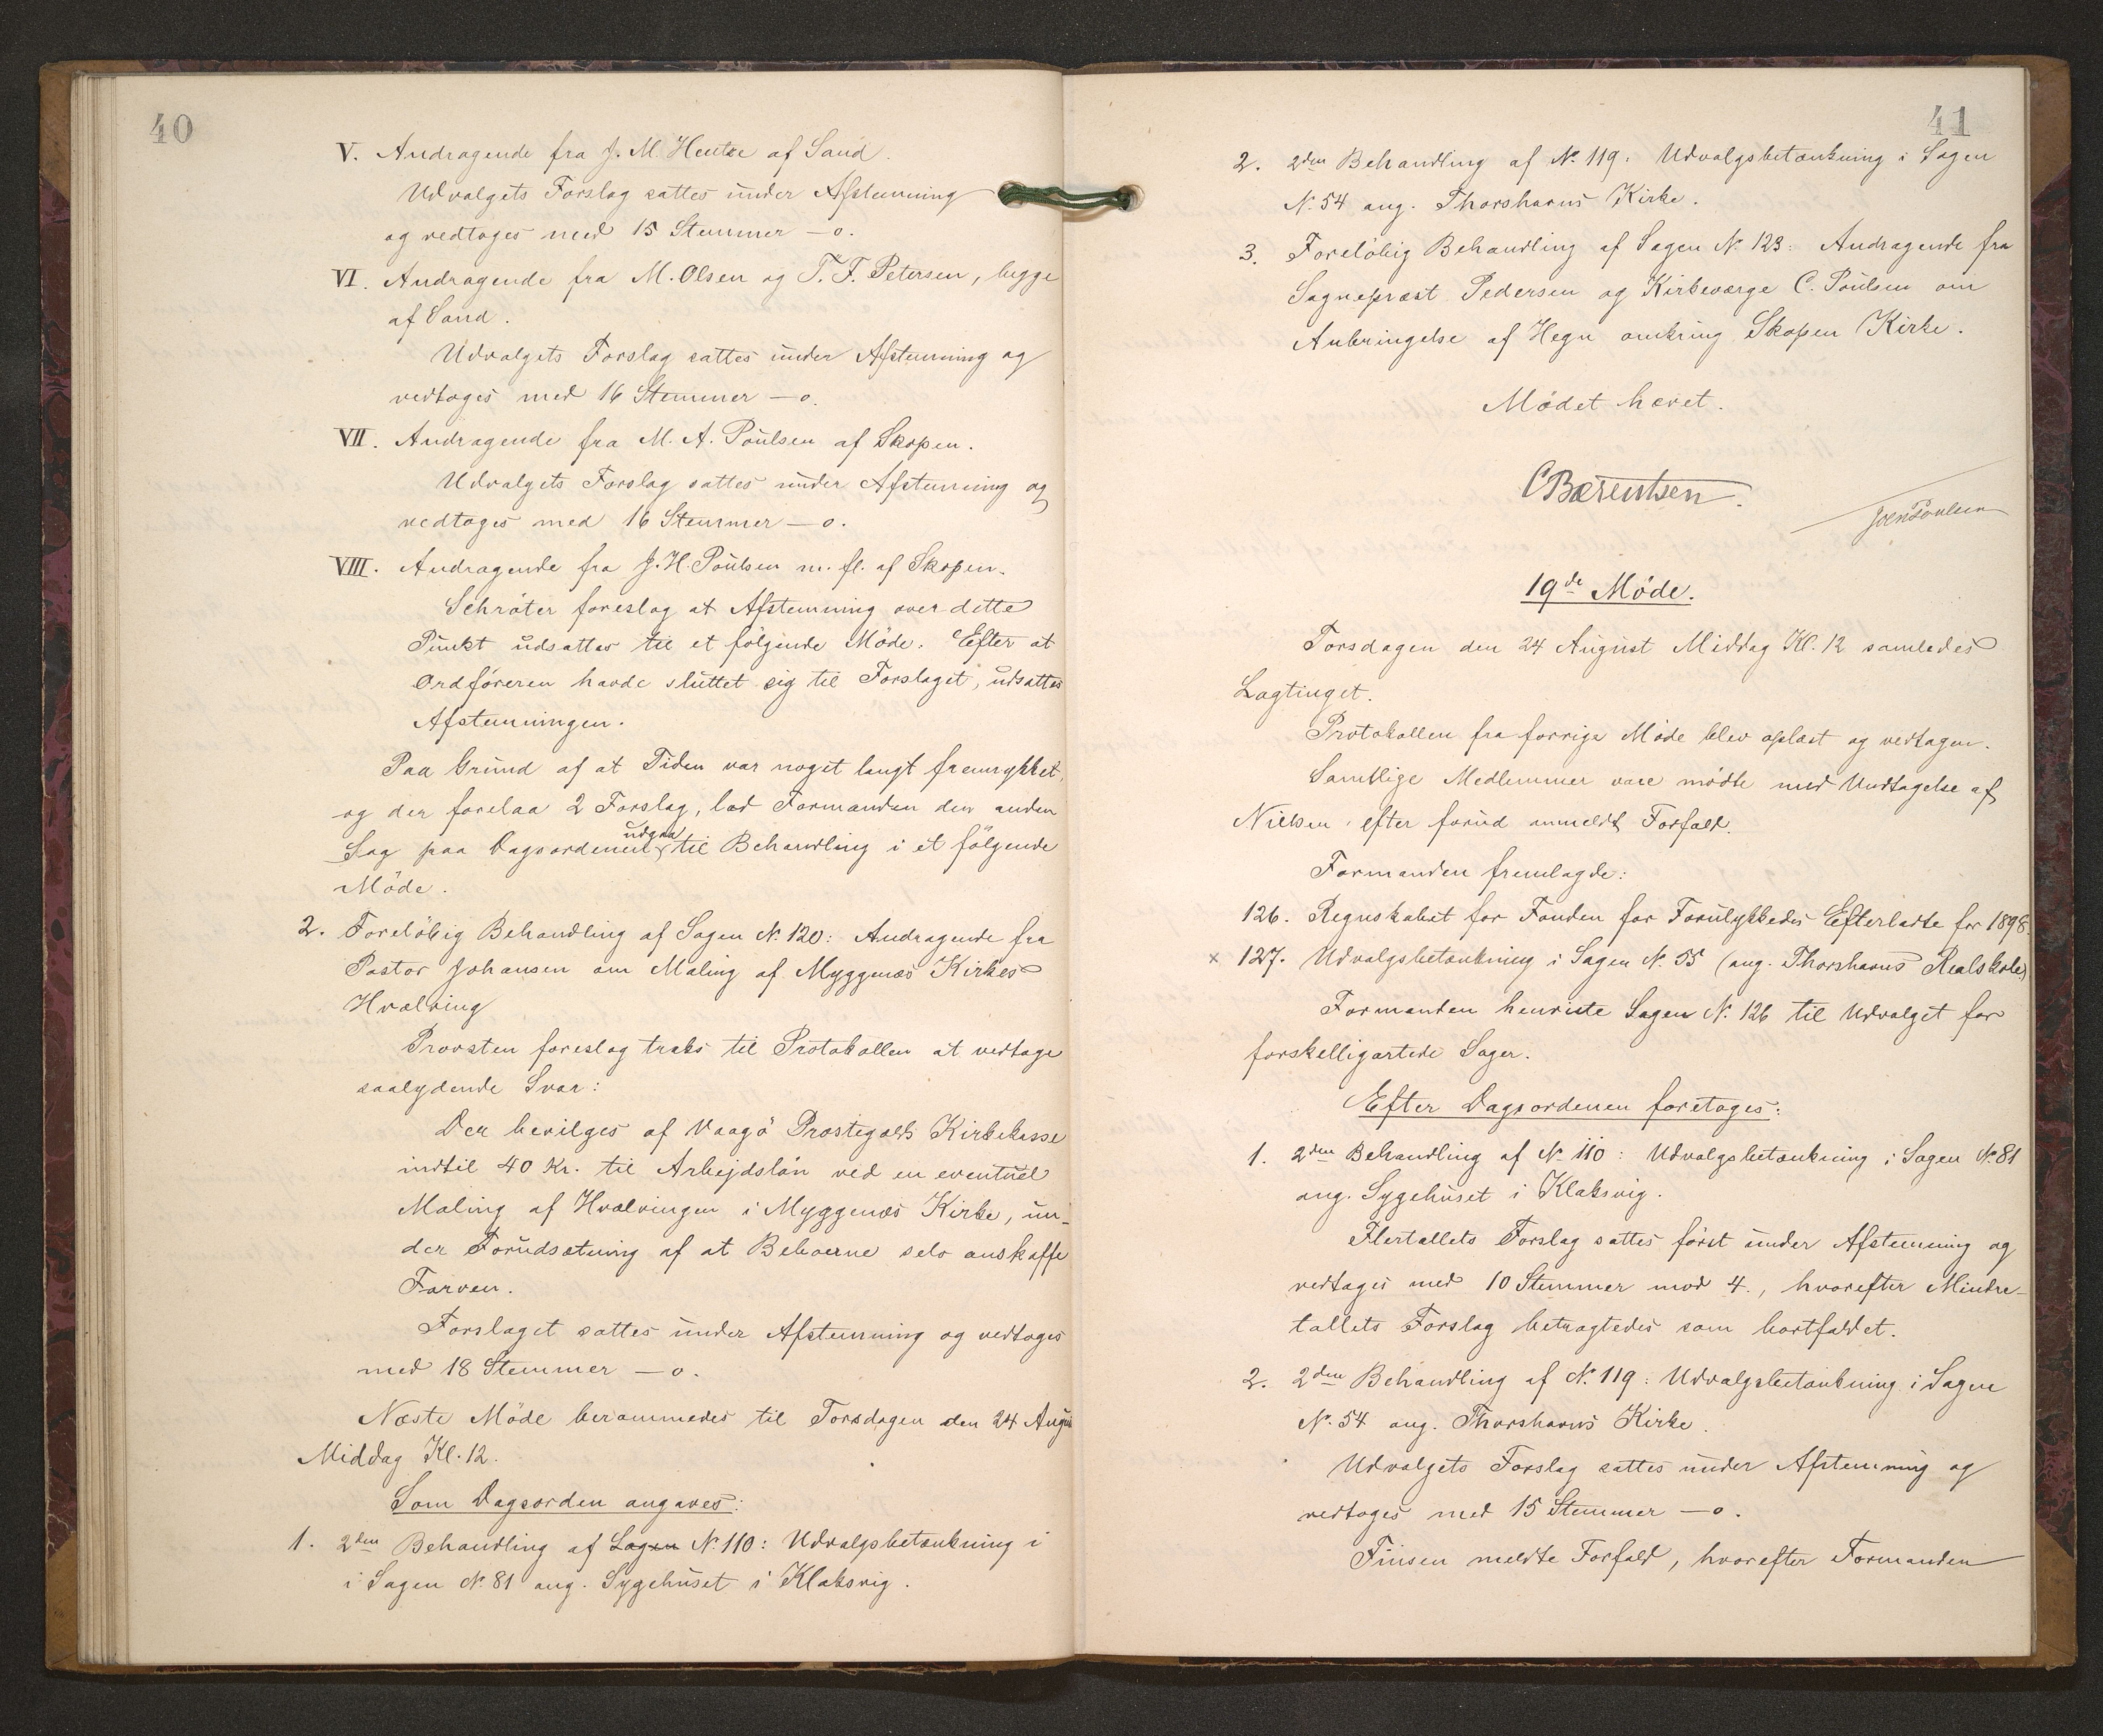 40
V. Andragende fra J. M. Hentze af Sand.
Udvalgets Forslag sattes under Afstemning
og vedtoges med 15 Stemmer – o.
VI. Andragende fra M. Olsen og T. F. Petersen, begge
af Sand.
Udvalgets Forslag sattes under Afstemning og
vedtoges med 16 Stemmer – o.
VII. Andragende fra M. A. Poulsen af Skopen.
Udvalgets Forslag sattes under Afstemning og
vedtoges med 16 Stemmer – o.
VIII. Andragende fra J. H. Poulsen m. fl. af Skopen.
Schröter foreslog at Afstemning over dette
Punkt udsattes til et følgende Møde. Efter at
Ordføreren havde sluttet sig til Forslaget, udsattes
Afstemningen.
Paa Grund af at Tiden var noget langt fremrykket,
og der forelaa 2 Forslag, lod Formanden den anden
Sag paa Dagsordenen udgaa til Behandling i et følgende
Møde.
2. Foreløbig Behandling af Sagen No. 120: Andragende fra
Pastor Johansen om Maling af Myggenæs Kirkes
Hvælving
Provsten foreslog straks til Protokollen at vedtage
saalydende Svar:
Der bevilges af Vaagø Præstegælds Kirkekasse
indtil 40 Kr. til Arbejdsløn ved en eventuel
Maling af Hvælvingen i Myggenæs Kirke, un-
der Forudsætning af at Beboerne selv anskaffe
Farven.
Forslaget sattes under Afstemning og vedtoges
med 18 Stemmer – o.
Næste Møde berammedes til Torsdagen den 24 August
Middag Kl. 12.
Som Dagsorden angaves:
1. 2den Behandling af Sagen No. 110: Udvalgsbetænkning i
i Sagen No. 81 ang. Sygehuset i Klaksvig.
41
2. 2den Behandling af No. 119: Udvalgsbetænkning i Sagen
No. 54 ang. Thorshavns Kirke.
3. Foreløbig Behandling af Sagen No. 123: Andragende fra
Sognepræst Pedersen og Kirkeværge C. Poulsen om
Anbringelse af Hegn omkring Skopen Kirke.
Mødet hævet.
CBærentsen.
Joen Poulsen
19de Møde.
Torsdagen den 24 August Middag Kl. 12 samledes
Lagtinget.
Protokollen fra forrige Møde blev oplæst og vedtagen.
Samtlige Medlemmer vare mødte med Undtagelse af
Nielsen efter forud anmeldt Forfald.
Formanden fremlagde:
126. Regnskabet for Fonden for Forulykkedes Efterladte for 1898.
× 127. Udvalgsbetænkning i Sagen No. 55 (ang. Thorshavns Realskole)
Formanden henviste Sagen No. 126 til Udvalget for
forskelligartede Sager.
Efter Dagsordenen foretoges:
1. 2den Behandling af No. 110: Udvalgsbetænkning i Sagen No. 81
ang. Sygehuset i Klaksvig.
Flertallets Forslag sattes først under Afstemning og
vedtoges med 10 Stemmer mod 4., hvorefter Mindre-
tallets Forslag betragtedes som bortfaldet.
2. 2den Behandling af No. 119: Udvalgsbetænkning i Sagen
No. 54 ang. Thorshavns Kirke.
Udvalgets Forslag sattes under Afstemning og
vedtoges med 15 Stemmer – o.
Finsen meldte Forfald, hvorefter Formanden